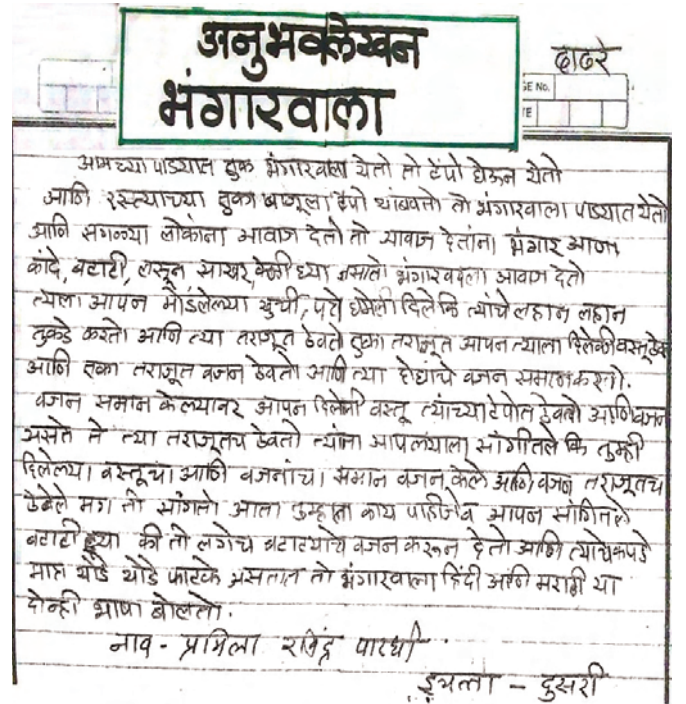 अनुभवलेखन
भंगारवाला
दाढरे
GE No.
TE
आमच्या पाड्यात एक भंगारवाला येतो तो टेंपो घेऊन येतो
आणि रस्त्याच्या एका बाजूला टेंपो थांबवतो तो भंगारवाला पाड्यात येतो
आणि सगळ्या लोकांना आवाज देतो तो आवाज देतांना भंगार आना
कांदे, बटाटी, लसून साखर, केळी घ्या असातो भंगारवाला आवाज देतो
त्याला आपन मोडलेल्या खुर्ची, पत्रे घमेली दिले कि त्यांचे लहान लहान
तुकडे करतो आणि त्या तराजूत ठेवतो एका तराजूत आपन त्याला दिलेकी वस्तू ठेव
आणि एका तराजूत वजन ठेवतो आणि त्या दोघांचे वजन समान करतो.
वजन समान केल्यावर आपन दिलेली वस्तू त्यांच्या टेंपोत ठेवतो आणि वजन
असते ते त्या तराजूतच ठेवतो त्यांना आपलयाला सांगीतले कि तुम्ही
दिलेल्या वस्तूचा आणि वजनांचा समान वजन केले आणि वजन तराजूतच
ठेवेले मग तो सांगतो आता तुम्हाला काय पाहीजेव आपन सांगितले
बटाटी द्या की तो लगेच बटाट्याचे वजन करून देतो आणि त्याचे कपडे
मात्र थोडे थोडे फाटके असतात तो भंगारवाला हिंदी आणि मराठी या
दोन्ही भाषा बोलतो.
नाव - प्रामिला रविंद्र पारधी
इयत्ता - दुसरी